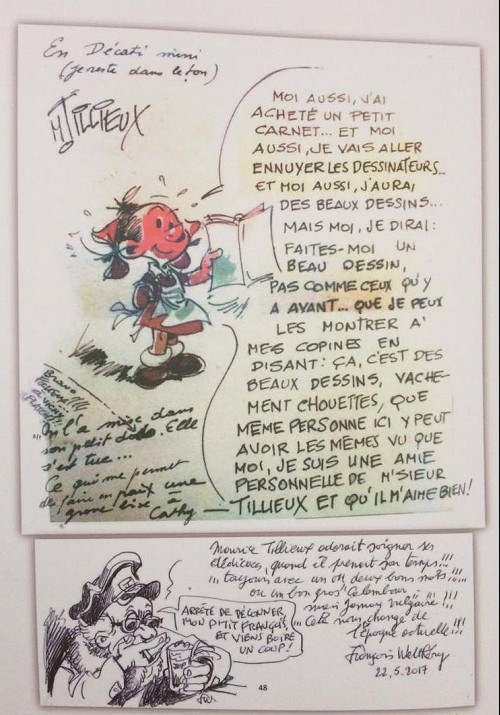 En Décati mini
(je reste dans le ton)
M. TILLIEUX
MOI AUSSI, J'AI
ACHETÉ UN PETIT
CARNET... ET MOI
AUSSI, JE VAIS ALLER
ENNUYER LES DESSINATEURS...
ET MOI AUSSI, J'AURAI
DES BEAUX DESSINS...
MAIS MOI, JE DIRAI :
FAITES-MOI UN
BEAU DESSIN,
PAS COMME CEUX QU'Y
A AVANT... QUE JE PEUX
LES MONTRER A'
MES COPINES EN
DISANT : ÇA, C'EST DES
BEAUX DESSINS, VACHE-
MENT CHOUETTES, QUE
MÊME PERSONNE ICI Y PEUT
AVOIR LES MÊMES VU QUE
MOI, JE SUIS UNE AMIE
PERSONNELLE DE M'SIEUR
TILLIEUX ET QU'IL M'AIME BIEN!
Bravo
On l'a mise dans
son petit dodo. Elle
s'est tue...
Ce qui me permet
de faire en paix une
grosse bise à
Cathy
Maurice Tillieux adorait soigner ses
dédicaces, quand il prenait son temps!!!
... toujours avec un ou deux bons mots!!!...
ou un bon gros Calembour
mais jamais vulgaire!!!
... Cela nous change de
l'époque actuelle!!!
François Walthéry
22.5.2017
ARRÊTE DE DÉCONNER,
MON P'TIT FRANÇOIS,
ET VIENS BOIRE
UN COUP!
48